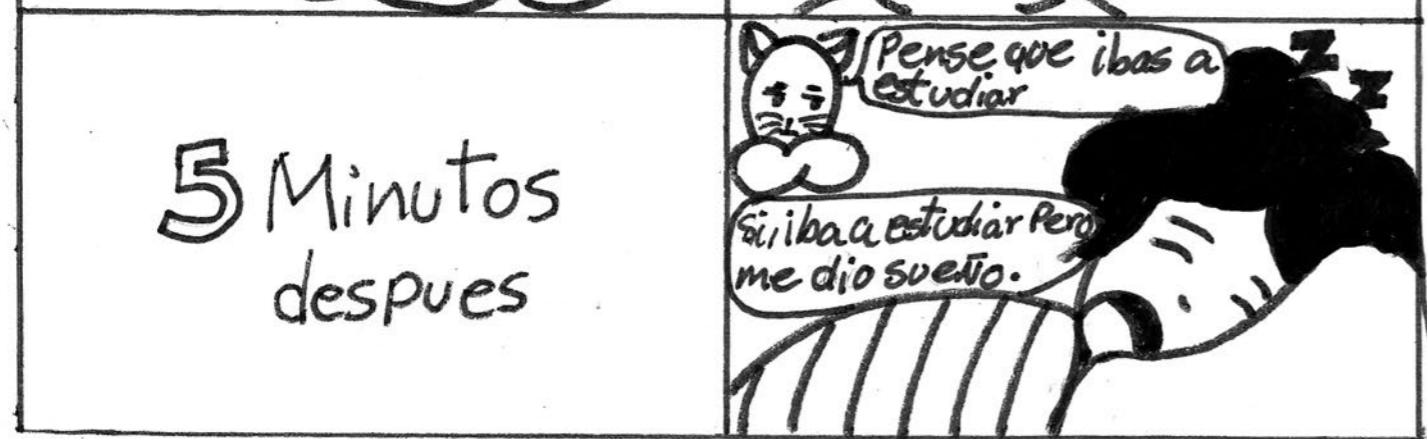 5 Minutos
despues
Pense que ibas a
estudiar
Z
Z
Si, iba a estudiar Pero
me dio sueño.